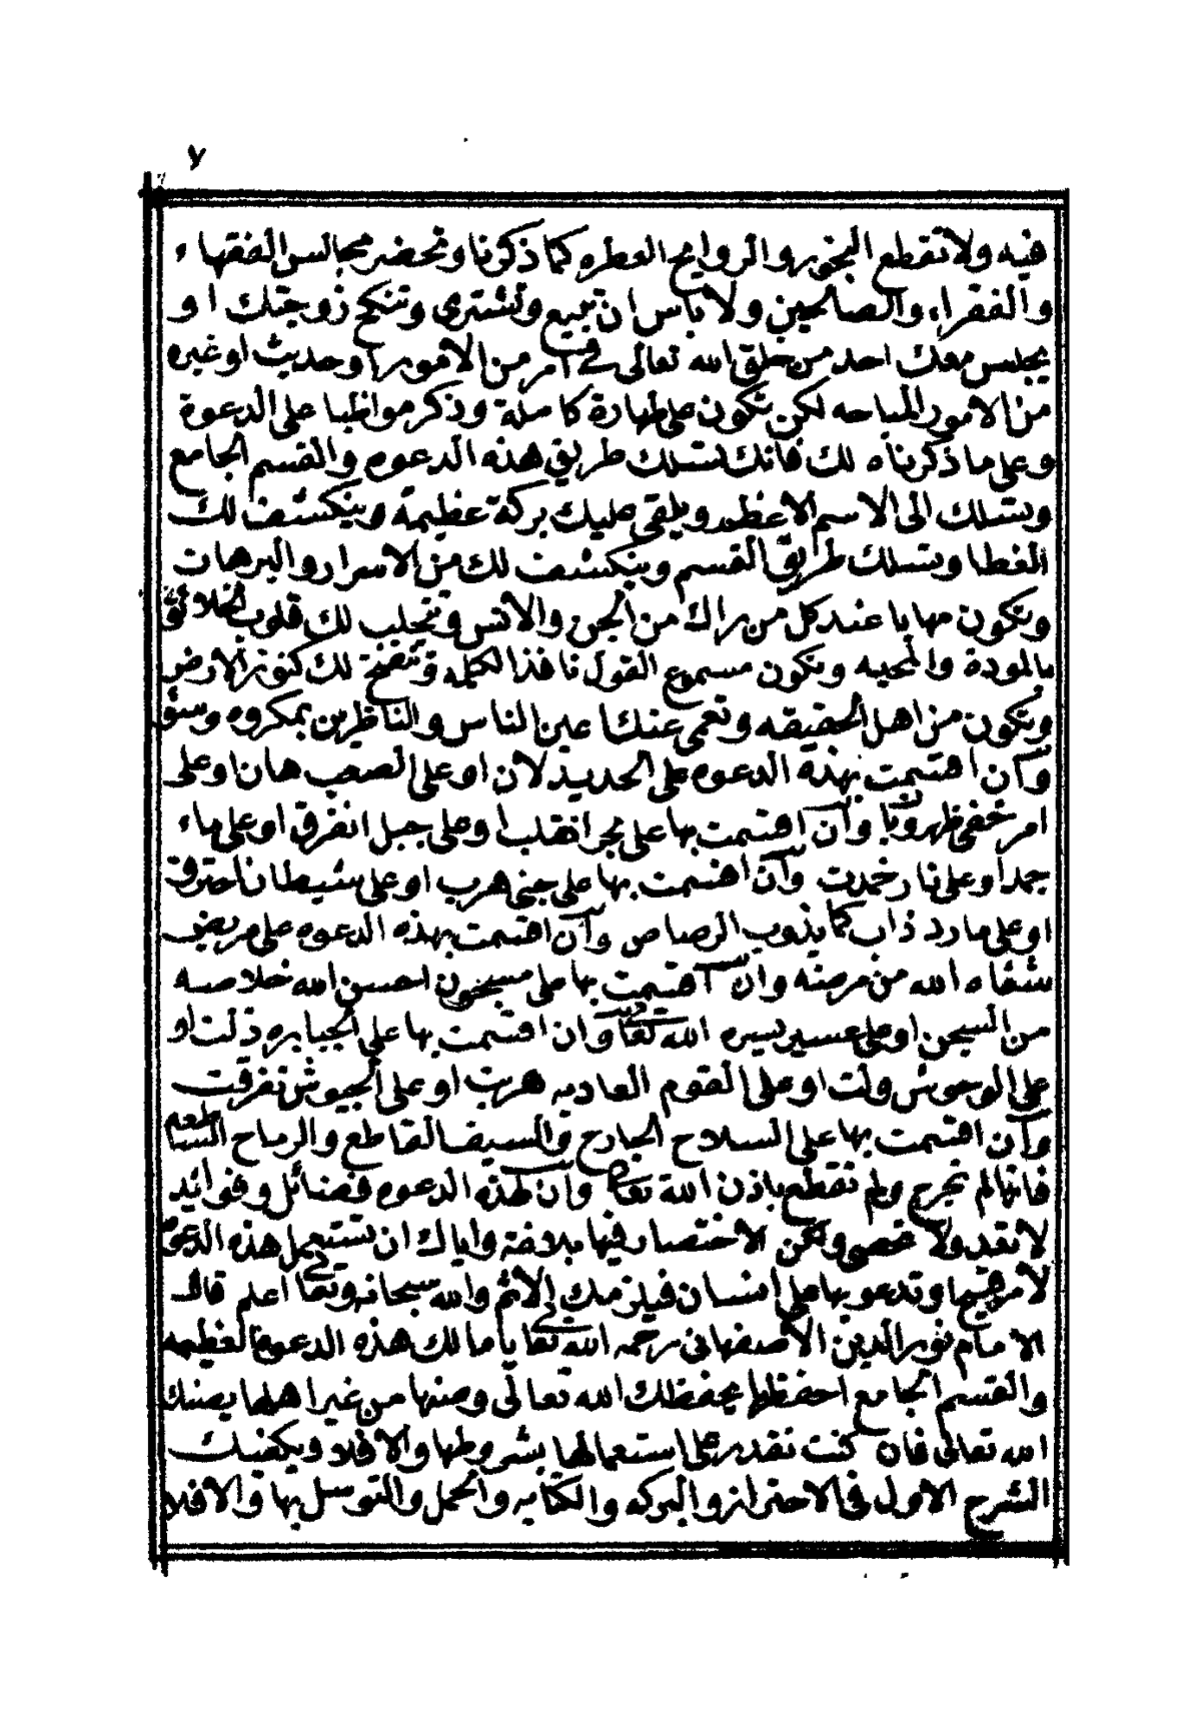 ٧
فيه ولا تقطع البخور والروايح العطره كما ذكرنا وتحضر مجالس الفقهاء
والفقراء والصالحين ولا باس ان تبيع وتشتري وتنكح زوجتك او
يجلس معك احد من خلق الله تعالى في امر من الامور او حديث او غيره
من الامور المباحه لكن تكون على طهارة كاملة وذكر مواظبا على الدعوة
وعلى ما ذكرناه لك فانك تسلك طريق هذه الدعوه والقسم الجامع
وتسلك الى الاسم الاعظم ويلقى عليك بركة عظيمة وينكشف لك
الغطا وتسلك طرايق القسم وينكشف لك من الاسرار والبرهات
وتكون مهابا عند كل من راك من الجن والانس وتنجلب لك قلوب الخلائق
بالمودة والمحبه وتكون مسموع القول نافذ الكلمه وتنفتح لك كنوز الارض
وتكون من اهل الحقيقه وتعمى عنك اعين الناس والناظرين بمكروه وسؤ
وان اقسمت بهذه الدعوه على الحديد لان او على الصعب هان او على
امر خفي ظهر وبان وان اقسمت بها على بحر انقلب او على جبل انفرق او على ماء
جمد او على نار خمدت وان اقسمت بها على جني هرب او على شيطان احترق
او على مارد ذاب كما يذوب الرصاص وان اقسمت بهذه الدعوه على مريض
شفاه الله من مرضه وان اقسمت بها على مسجون احسن الله خلاصه
من السجن او على عسير يسره الله تعالى وان اقسمت بها على الجبابره ذلت او
على الوحوش ولت او على القوم العاديه هربت او على الجيوش تفرقت
وان اقسمت بها على السلاح الجارح والسيف القاطع والرماح
فانها لم تجرح ولم تقطع باذن الله تعالى وان لهذه الدعوه فضائل وفوائد
لا تعد ولا تحصى ولكن الاختصار فيها بلاغة واياك ان تستعمل هذه الدعوة
لامر فيها وتدعو بها على انسان فيلزمك الاثم والله سبحانه وتعالى اعلم قال
الامام نور الدين الاصفهاني رحمه الله تعالى يا مالك هذه الدعوة العظيمه
والقسم الجامع احفظها يحفظك الله تعالى وصنها من غير اهلها يصنك
الله تعالى فان كنت تقدر على استعمالها بشروطها والا فلا ويكفيك
الشرح الاول في الاحتراز والبركه والكتابه والحمل والتوسل بها والا فلا